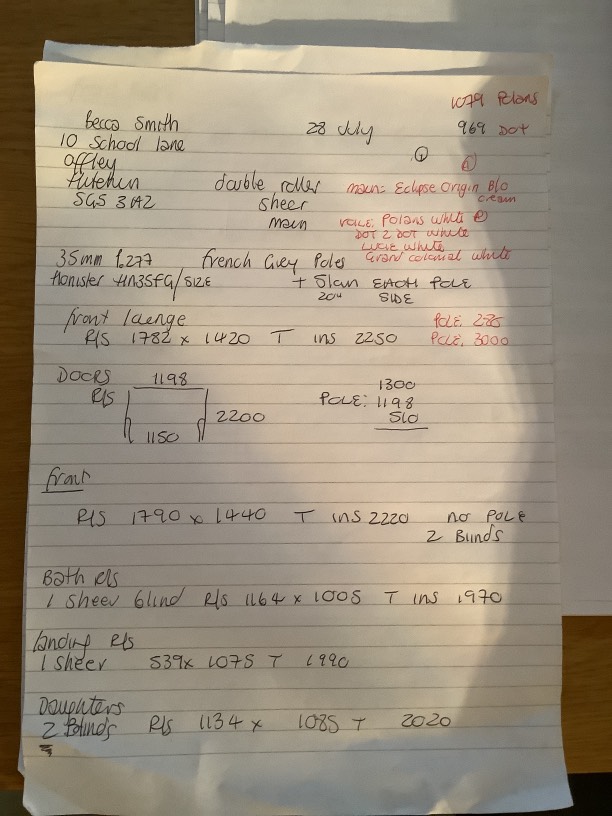 1079 Polans
Becca Smith 28 July 969 DOT
10 School lane
offley
double roller main: Eclipse Origin B/O
cream
SG5 3AZ sheer
main voile: Polans white
DOT 2 DOT white
Lucie white
Grand colonial white
35mm French Grey Poles
Honister HN35FG/SIZE + 5lam EACH POLE
SIDE
front
R/S 1782 x 1420 T ins 2250
POLE, 285
POLE, 3000
DOORS 1198
R/S
2200
1150
1300
POLE: 1198
510
front
R/S 1790 x 1440 T ins 2220 no POLE
2 Blinds
Bath R/S
1 sheer blind R/S 1164 x 1005 T ins 1970
landing R/S
1 sheer 539x 1075 T 1990
Daughters
2 Blinds R/S 1134 x 1085 T 2020